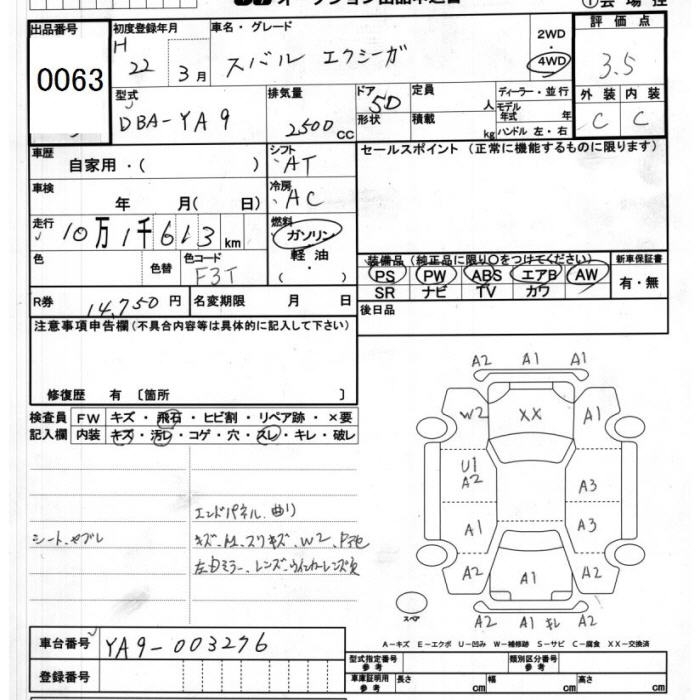 出品番号
0063
初度登録年月
H 22年 3月
車名・グレード
スバル エクシーガ
2WD
4WD
評価点
3.5
型式
DBA-YA9
排気量
2500CC
ドア
5D
形状
定員
人
積載
kg
ディーラー・並行
モデル年式
年
ハンドル 左・右
外装
内装
C
C
車歴
自家用・( )
シフト
AT
車検
年 月( 日)
冷房
AC
走行
10万1千613km
燃料
ガソリン
軽油
( ・ )
色
色替
色コード
F3T
R券
14,750円
名変期限
月 日
セールスポイント(正常に機能するものに限ります)
装備品(純正品に限り○をつけてください)
PS PW ABS エアB AW
SR ナビ TV カワ
新車保証書
有・無
後日品
注意事項申告欄(不具合内容等は具体的に記入して下さい)
修復歴 有 [箇所 ]
検査員 FW キズ・飛石・ヒビ割・リペア跡・×要
記入欄 内装 キズ・汚レ・コゲ・穴・スレ・キレ・破レ
エンドパネル、曲り
キズー
スリキズ、W2、
左Dミラー、レンズ・ウインカーレンズ
シート、
A2 A1 A1
W2 XX A1
U1
A2 A3
A1 A3
A2 A1 A2
A2 A1 キレ A2
スペア
A-キズ E-エクボ U-凹み W-補修跡 S-サビ C-腐食 XX-交換済
車台番号
YA9-003276
登録番号
型式指定番号
参考
類別区分番号
参考
車庫証明用
参考
長さ cm
幅 cm
高さ cm